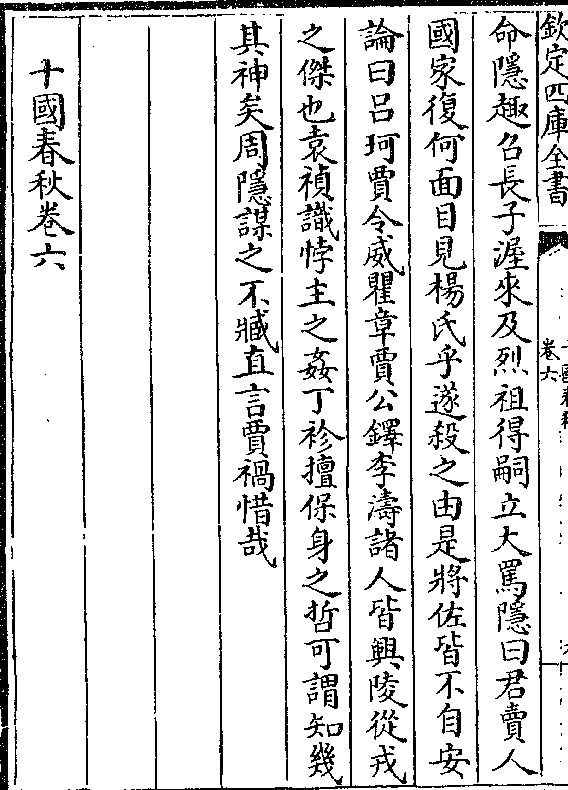 欽定四庫全書
卷六
命隱趣召長子渥來及烈祖得嗣立大罵隱曰君賣人
國家復何面目見楊氏乎遂殺之由是將佐皆不自安
論曰吕珂賈令威瞿章賈公鐸李濤諸人皆興陵從戎
之傑也袁禎識悖主之姦丁袗擅保身之哲可謂知幾
其神矣周隱謀之不臧直言賈禍惜哉
十國春秋卷六